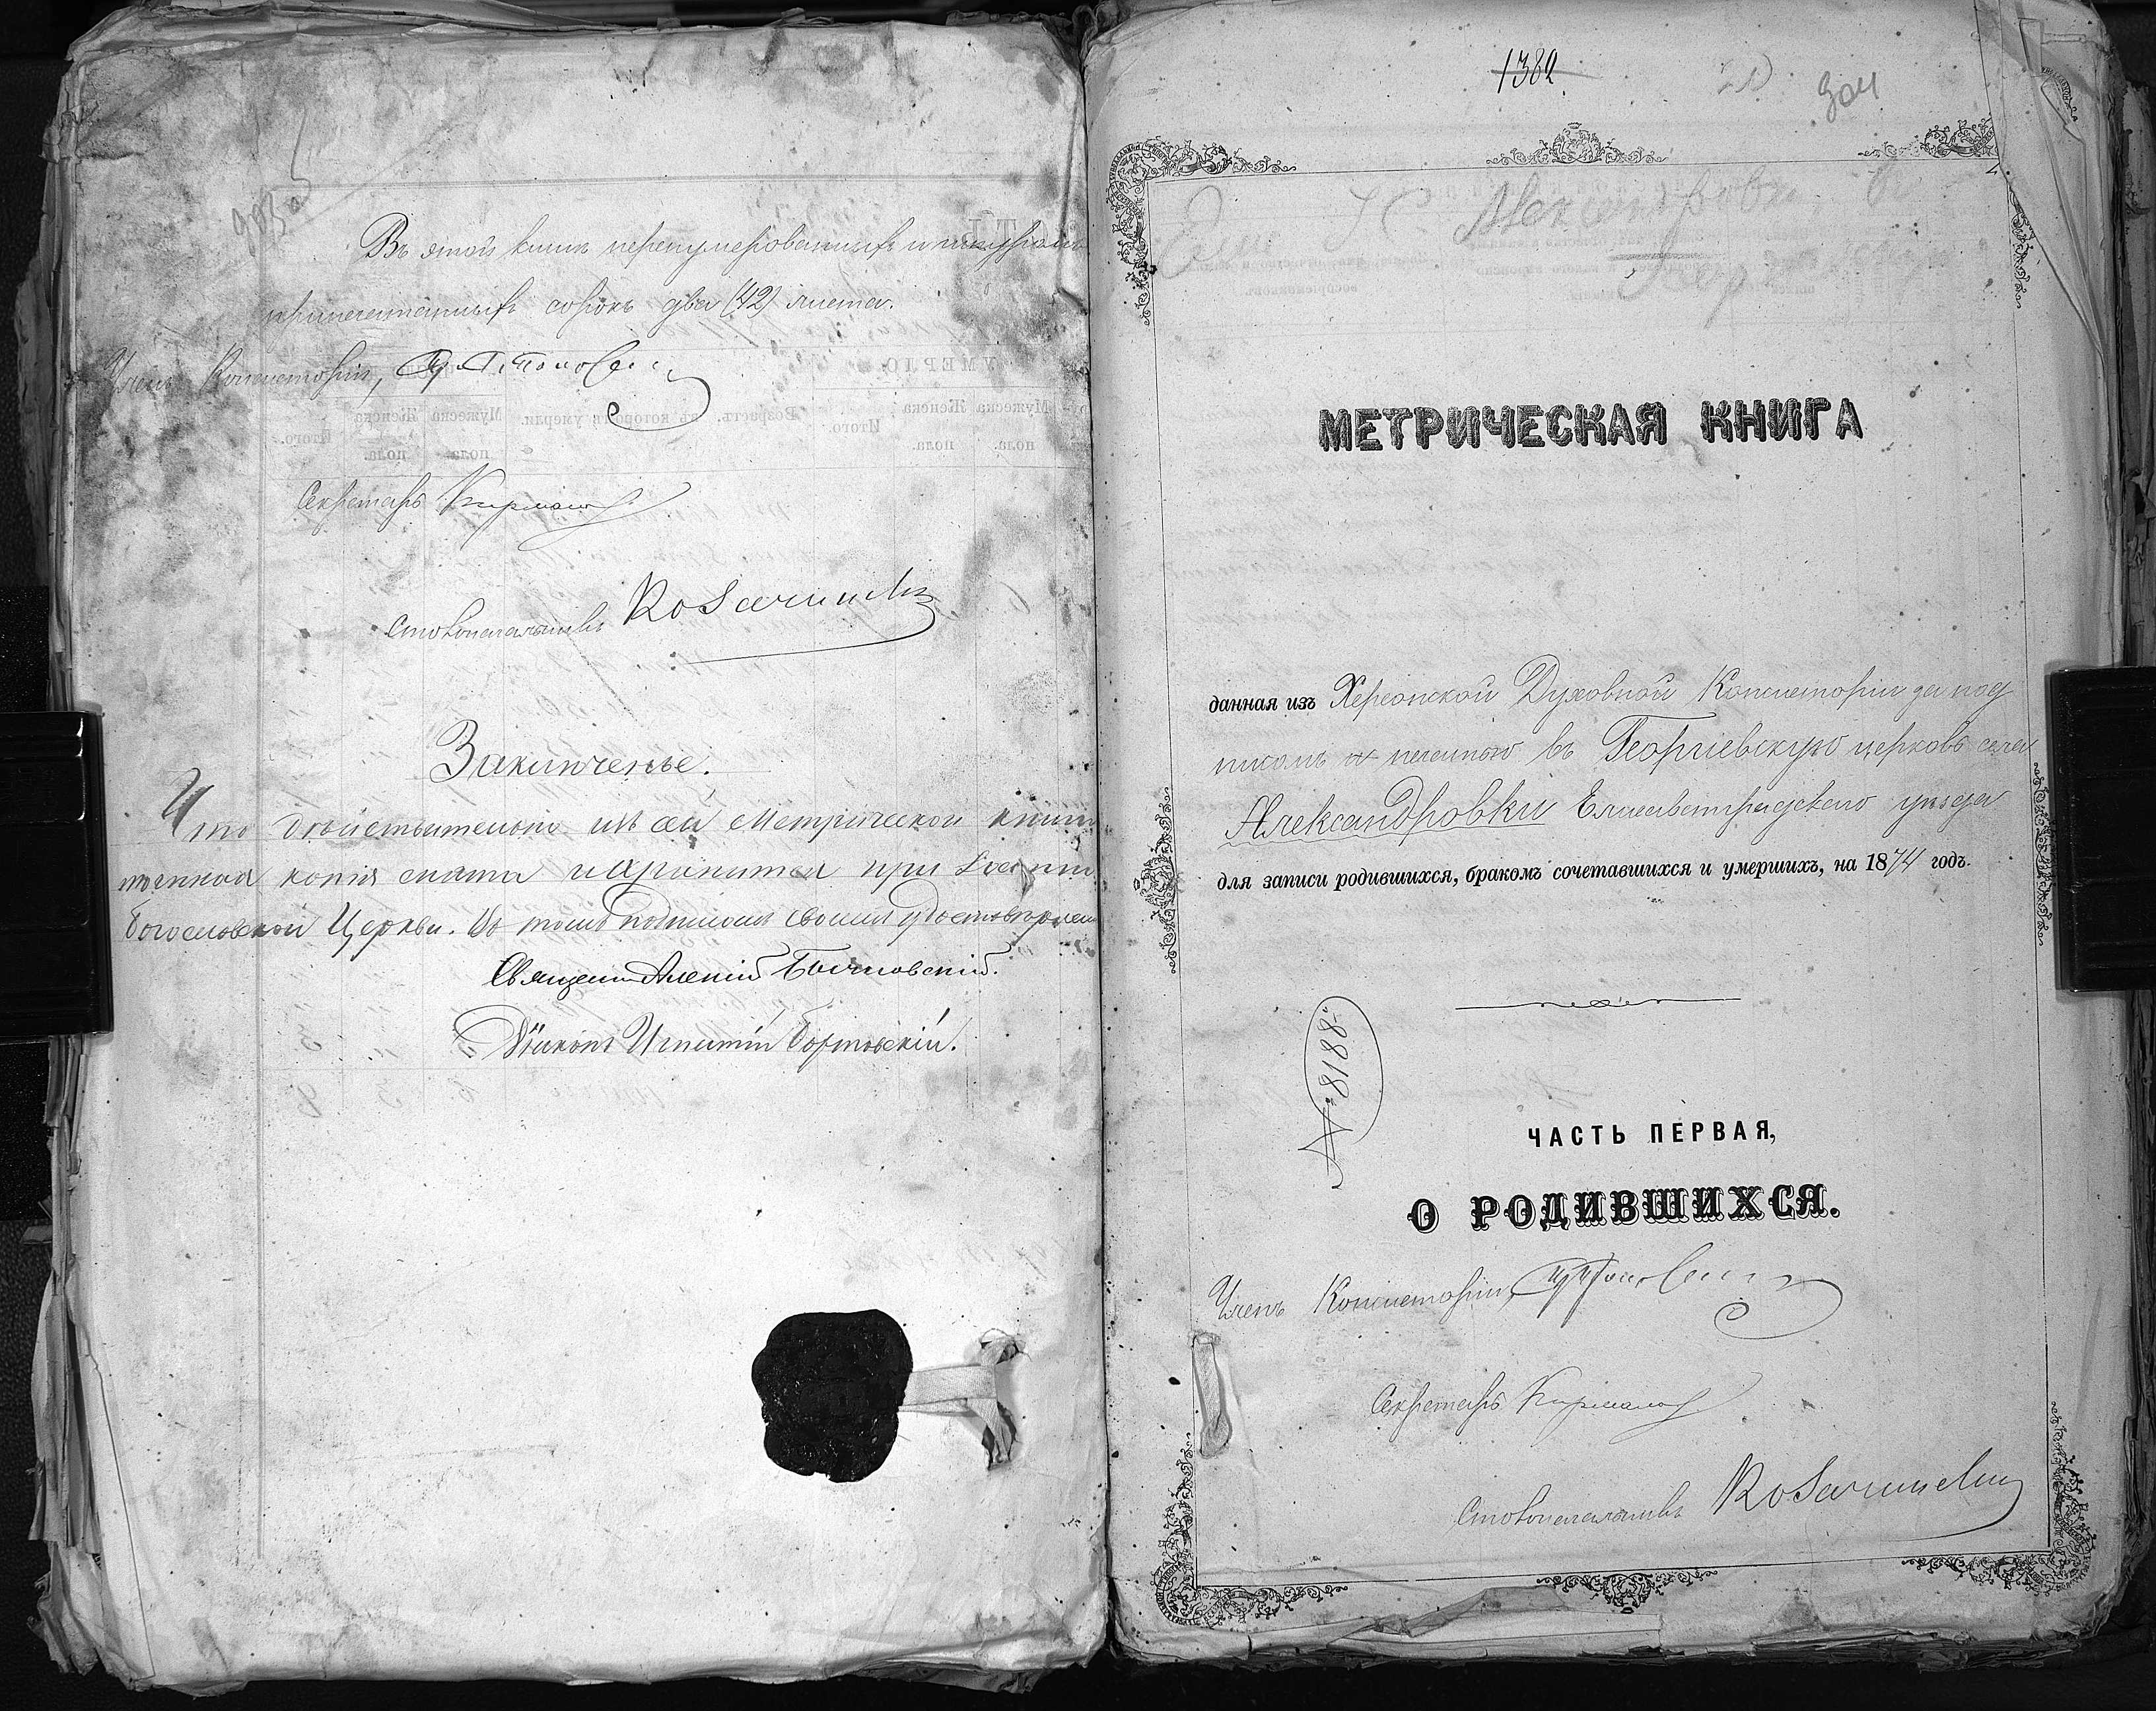 903 об
Въ этой книгѣ перенумерованныхъ и шнуромъ
припечатанныхъ сорокъ два (42) листа.
Членъ Консисторіи,
Секретарь
Столоначальникъ
Заключенье.
Что дѣйствительно изъ сей Метрической книги
точная копія снята и хранится при Іоанно
богословской Церкви. въ томъ подписомъ своимъ удостовѣряемъ
Священникъ Алексій
Діаконъ Игнатій
1382
904
МЕТРИЧЕСКАЯ КНИГА
данная изъ Херсонской Духовной Консисторіи за под
писомъ и печатью въ Георгіевскую церковь села
Александровки Елисаветградскаго уѣзда
для записи родившихся, бракомъ сочетавшихся и умершихъ, на 1874 годъ.
№ 8188.
ЧАСТЬ ПЕРВАЯ,
О РОДИВШИХСЯ.
Членъ Консисторіи,
Секретарь
Столоначальникъ